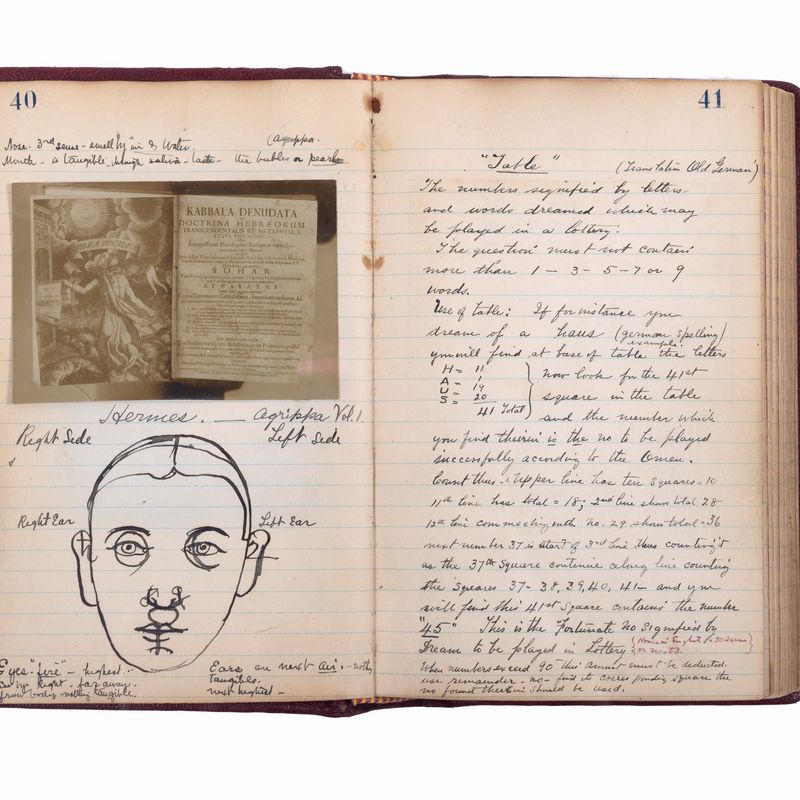 40
Nose. 3rd sense - smell by air & Water. (Agrippa.
Mouth - is tangible through saliva - taste - the bubles or pearls
KABBALA DENUDATA
DOCTRINA HEBRÆORUM
TRANSCENDENTALIS ET METAPHYSICA
SOHAR
APPARATUS
Hermes. — Agrippa Vol. 1.
Right Side Left Side
Right Ear Left Ear
Eyes "fire" - highest..
far away.
from body nothing tangible.
Ears are next air - nothing
tangible.
next highest -
41
"Table" (Translation Old German)
The numbers signified by letters
and words dreamed which may
be played in a lottery.
The question must not contain
more than 1 - 3 - 5 - 7 or 9
words.
Use of table: If for instance you
dream of a haus (german spelling)
example:
you will find at base of table the letters
H = 11
A = 1
U = 19
S = 20
41 Total
now look for the 41st
square in the table
and the number which
you find therein is the no to be played
successfully according to the Omen.
Count thus - 1. Upper line has ten squares = 10
11th line has total = 18; 2nd line shows total 28
12th line connecting with No. 29 shows total = 36
next number 37 is start of 3rd line thus counting it
as the 37th Square continue along line counting
the squares 37 - 38, 39, 40, 41 - and you
will find this 41st square contains the number
"45" This is the Fortunate no signified by
Dream to be played in Lottery.
or no. 53.
When numbers exceed 90 this amount must be deducted.
use remainder - no - find its corresponding square the
no found therein should be used.